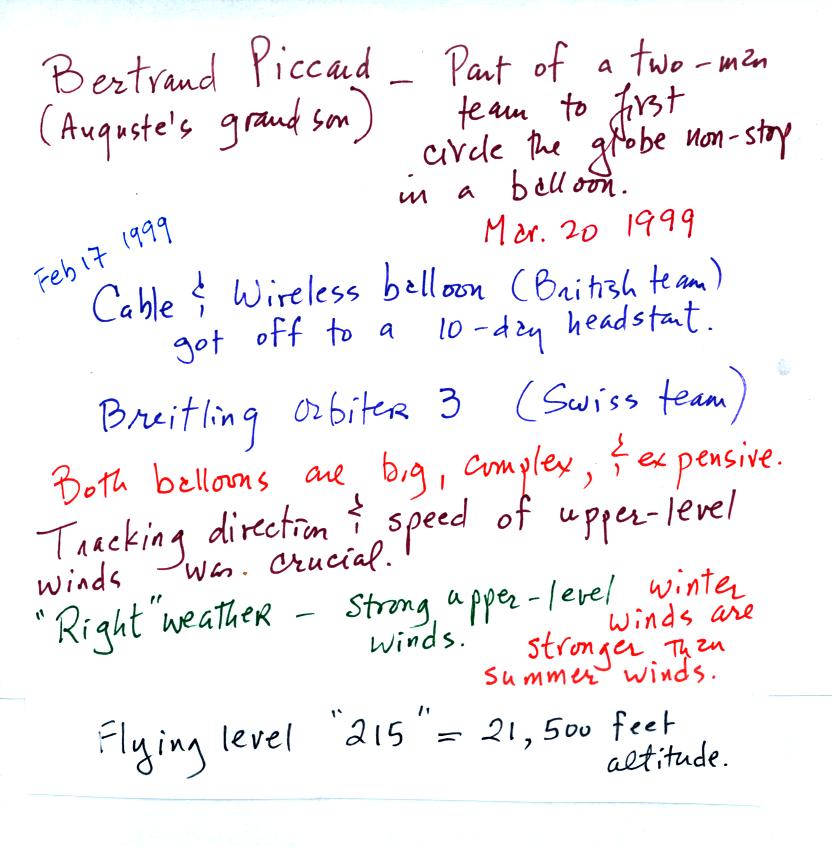 Bertrand Piccard – Part of a two-man
(Auguste's grandson) team to first
circle the globe non-stop
in a balloon.
Mar. 20 1999
Feb 17 1999
Cable & Wireless balloon (British team)
got off to a 10-day headstart.
Breitling Orbiter 3 (Swiss team)
Both balloons are big, complex, & expensive.
Tracking direction & speed of upper-level
winds was crucial.
"Right" weather – strong upper-level winter
winds. winds are
stronger than
summer winds.
Flying level "215" = 21,500 feet
altitude.